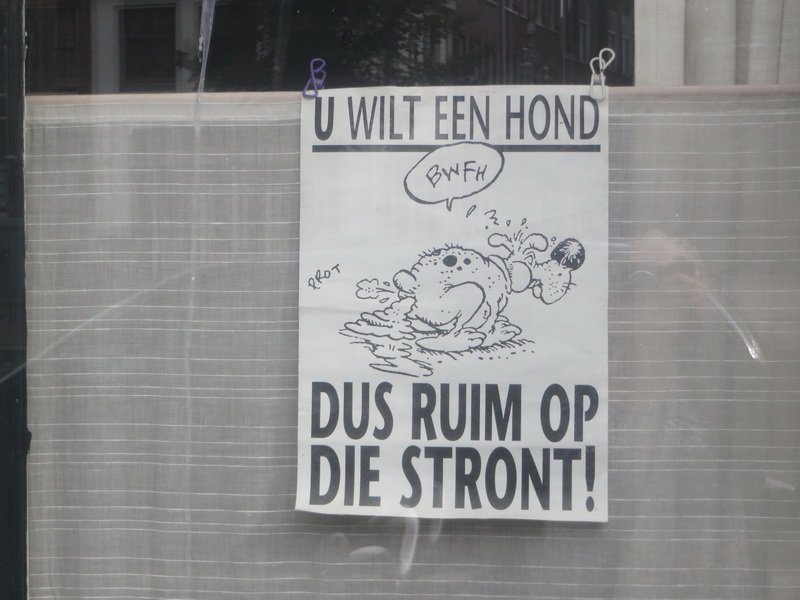 U WILT EEN HOND
BWFH
PROT
DUS RUIM OP
DIE STRONT!